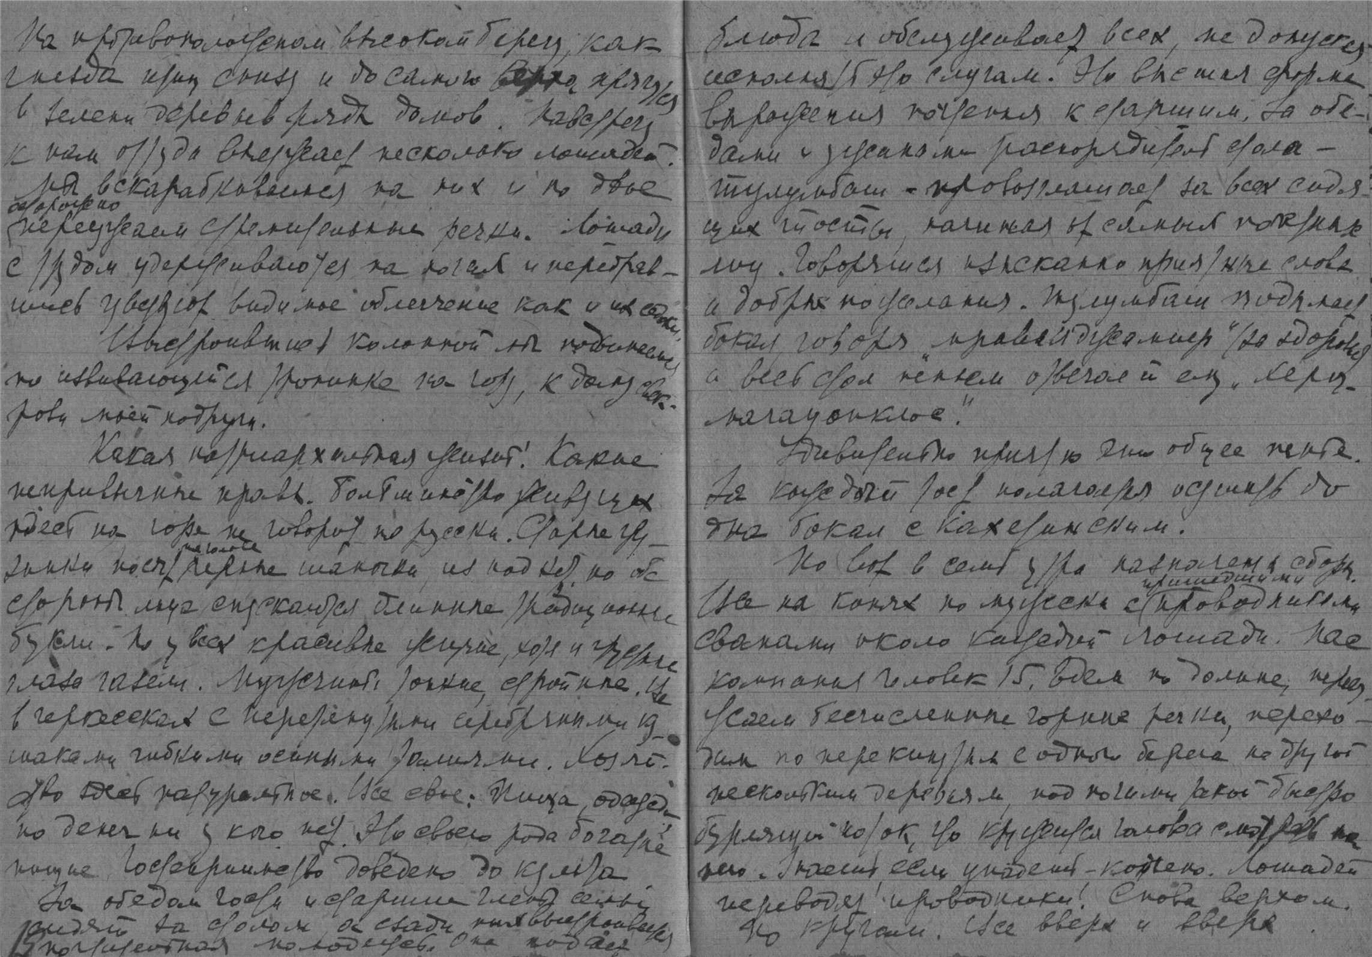 На противоположном высоком берегу, как
гнезда птиц снизу и до самого верха прячутся
в зелени деревьев ряды домов. Навстречу
к нам оттуда въезжает несколько лошадей.
Мы вскарабкиваемся на них и по двое
осторожно
переезжаем стремительные речки. Лошади
с трудом удерживаются на ногах и перебрав-
шись чувствуют видимое облегчение как и их седоки.
Выстроившись колонной мы поднимаемся
по извивающейся тропинке на гору, к дому свек-
рови моей подруги.
Какая патриархальная жизнь! Какие
непривычные нравы. Большинство живущих
здесь на горе не говорят по русски. Старые гру-
зинки носят черные шапочки, из под них по обе
стороны лица спускаются длинные традиционные
букли. Но у всех красивые жгучие, хотя и грустные
глаза газели. Мужчины тонкие, стройные. Все
в черкесках с перетянутыми серебряными ку-
шаками гибкими осиными талиями. Хозяй-
ство здесь натуральное. Все свое: Пища, одежда
но денег ни у кого нет. Но своего рода богатые
нищие. Гостеприимство доведено до культа
За обедом гости и старшие члены семьи
сидят за столом, а сзади них выстроившись
почтительная молодежь. Она подает
блюда и обслуживает всех, не допуская
исполнять это слугам. Это высшая форма
выражения почтения к старшим. За обе-
дами и ужинами распорядитель стола –
тулумбаш – провозглашает за всех сидя-
щих тосты, начиная от самых пожилых
лиц. Говорятся изысканно приятные слова
и добрые пожелания. Тулумбаш поднимает
бокал, говоря „ (за здоровье)
и весь стол пением отвечает ему „
Удивительно приятно это общее пенье.
За каждый тост полагается осушить до
дна бокал с Кахетинским.
Но вот в семь утра назначены сборы.
пришедшими
Все на конях по мужски с проводниками
сванами около каждой лошади. Нас
компания человек 15. Едем по долине, переез-
жаем бесчисленные горные речки, перехо-
дим по перекинутым с одного берега на другой
нескольким деревьям, под ногами такой быстро
бурлящий поток, что кружится голова смотреть на
него. Знаешь если упадешь – конец. Лошадей
переводят проводники! Снова верхом.
По кручам. Все вверх и вверх.